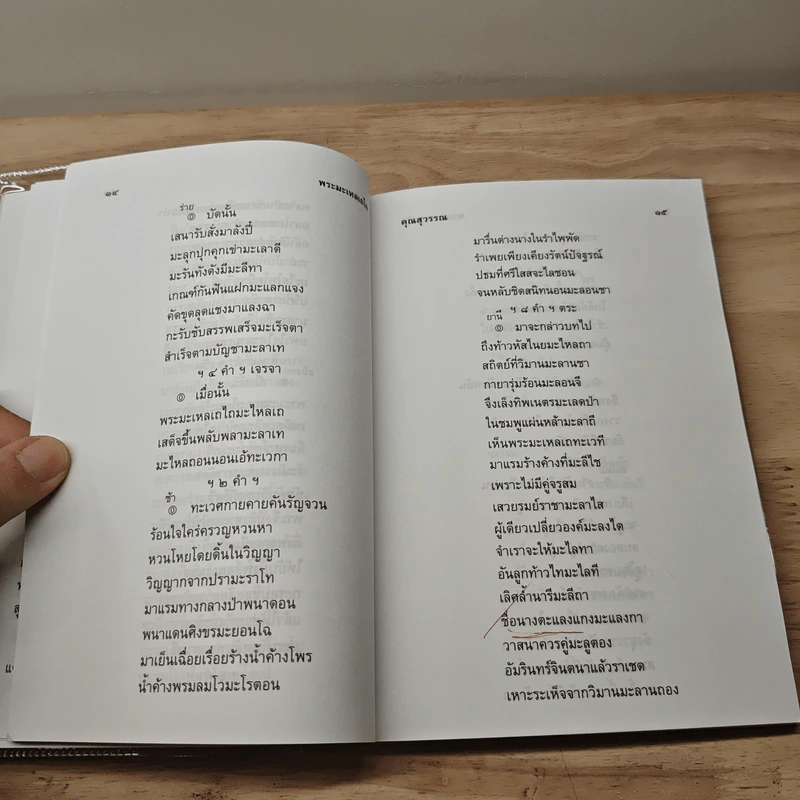 ๑๔
พระมะเหลเถไถ
ร่าย
๏ บัดนั้น
เสนารับสั่งมาลังปี๋
มะลุกปุกคุกเข่ามะเลาตี
มะรันทังดังมีมะลีทา
เกณฑ์กันฟันแฝกมะแลกแจง
คัดขุดลุดแชงมาแลงฉา
กะรับซับสรรพเสร็จมะเร็จตา
สำเร็จตามบัญชามะลาเท
ฯ ๔ คำ ฯ เจรจา
๏ เมื่อนั้น
พระมะเหลเถไถมะไหลเถ
เสด็จขึ้นพลับพลามะลาเท
มะไหลถอนนอนเอ้ทะเวกา
ฯ ๒ คำ ฯ
ช้า
๏ ทะเวศกายคายคันรัญจวน
ร้อนใจใคร่ครวญหวนหา
หวนโหยโดยดิ้นในวิญญา
วิญญากจากปรามะราโท
มาแรมทางกลางป่าพนาดอน
พนาแดนศิงขรมะยอนโฉ
มาเย็นเฉื่อยเรื่อยร้างน้ำค้างโพร
น้ำค้างพรมลมโวมะโรตอน
คุณสุวรรณ
๑๕
มารื่นต่างนางในรำไพพัด
รำเพยเพียงเคียงรัตน์ปัจฐรณ์
ปธมที่ศรีไสสจะไลซอน
จนหลับชิดสนิทนอนมะลอนชา
ฯ ๘ คำ ฯ ตระ
ยานี
๏ มาจะกล่าวบทไป
ถึงท้าวหัสไนยมะไหลถา
สถิตย์ที่วิมานมะลานชา
กายารุ่มร้อนมะลอนจี
จึงเล็งทิพเนตรมะเลดป๋า
ในชมพูแผ่นหล้ามะลาถี
เห็นพระมะเหลเถทะเวที
มาแรมร้างค้างที่มะลีไช
เพราะไม่มีคู่จรูสม
เสวยรมย์ราชามะลาไส
ผู้เดียวเปลี่ยวองค์มะลงไต
จำเราจะให้มะไลทา
อันลูกท้าวไทมะไลที
เลิศล้ำนารีมะลีถา
ชื่อนางตะแลงแกงมะแลงกา
วาสนาควรคู่มะลูตอง
อัมรินทร์จินตนาแล้วราเชด
เหาะระเห็จจากวิมานมะลานถอง